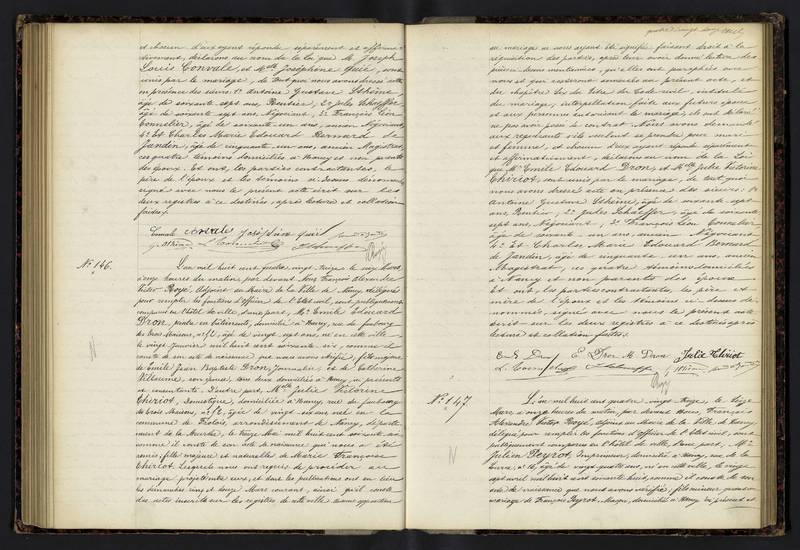 et chacun d'eux ayant répondu séparément et affirma-
tivement, déclarons au nom de la loi que M. Joseph
Louis Convale et Melle Joséphine Gail, sont
unis par le mariage, de tout quoi nous avons dressé acte
en présence des sieurs: 1° Antoine Gustave
âgé de soixante sept ans, Rentier, 2° Jules Schaeffer
âgé de soixante sept ans, Négociant, 3° François Léon
âgé de soixante un ans, ancien Négociant,
4° Et Charles Marie Edouard Bernard de
Jandin, âgé de cinquante un ans, ancien Magistrat,
ces quatre témoins domiciliés à Nancy et non parents
des époux. Et ont, les parties contractantes, le
père de l'époux et les témoins ci-dessus dénommés
signé avec nous le présent acte écrit sur les
deux registres à ce destinés, après lecture et collation
faites.
Convale Joséphine Gail
N° 146.
L'an mil huit cent quatre vingt treize le
à onze heures du matin, par devant Nous François Alexandre
Victor Adjoint au Maire de la Ville de Nancy, délégué
pour remplir les fonctions d'officier de l'Etat civil, ont publiquement
comparu en l'hôtel de ville d'une part, Mr Emile Edouard
Dron, domicilié à Nancy, rue du faubourg
des trois Maisons, âgé de vingt sept ans, né en cette ville
le vingt janvier mil huit cent soixante six, comme il
conste de son acte de naissance que nous avons vérifié, fils majeur
de Emile Jean Baptiste Dron, Journalier, et de Catherine
son épouse, tous deux domiciliés à Nancy, ci présents
et consentants. D'autre part, Melle Julie Victorine
Thiriot, Domestique, domiciliée à Nancy, rue du faubourg
des trois Maisons, âgée de vingt six ans née en la
commune de Frolois, arrondissement de Nancy, départe-
ment de la Meurthe, le treize Mai mil huit cent soixante
comme il conste de son acte de naissance qui nous a été
remis, fille majeure et naturelle de Marie Françoise
Thiriot. Lesquels nous ont requis de procéder au
mariage projeté entre eux, et dont les publications ont eu lieu
les dimanches cinq et douze Mars courant, ainsi qu'il conste
des actes inscrits sur les registres de cette ville aucune opposition
au mariage ne nous ayant été signifiée faisant droit à la
réquisition des parties, après leur avoir donné lecture des
pièces mentionnées, qu'elles ont paraphées avec
nous et qui resteront annexées au présent acte, et
du chapitre Six du titre du Code civil, intitulé
du mariage; interpellation faite aux futurs époux
et aux personnes autorisant le mariage, ils ont déclaré
ne pas avoir passé de contrat. Nous avons demandé
aux requérants s'ils veulent se prendre pour mari
et femme, et chacun d'eux ayant répondu séparément
et affirmativement, déclarons au nom de la Loi
que Mr Emile Edouard Dron, et Melle Julie Victorine
Thiriot, sont unis par le mariage; de tout quoi
nous avons dressé acte en présence des sieurs: 1°
Antoine Gustave âgé de soixante sept
ans, Rentier, 2° Jules Schaeffer, âgé de soixante
sept ans, Négociant, 3° François Léon
âgé de soixante un ans, ancien Négociant
4° Et Charles Marie Edouard Bernard
de Jandin, âgé de cinquante un ans, ancien
Magistrat, ces quatre témoins domiciliés
à Nancy et non parents des époux
Et ont, les parties contractantes, les père et
mère de l'époux et les témoins ci-dessus dé-
nommés, signé avec nous le présent acte
écrit sur les deux registres à ce destinés après
lecture et collation faites.
E. Dron E. Dron Julie Thiriot
N° 147.
L'an mil huit cent quatre vingt treize, le treize
Mars à onze heures du matin, par devant Nous, François
Alexandre Victor adjoint au Maire de la Ville de Nancy,
délégué pour remplir les fonctions d'officier de l'Etat civil, ont
publiquement comparu en l'hôtel de ville, d'une part, Mr
Julien Peyrot, Imprimeur, domicilié à Nancy, rue de la
âgé de vingt quatre ans, né en cette ville, le vingt
mil huit cent soixante huit, comme il conste de son
acte de naissance que nous avons vérifié, fils mineur quant au
mariage de François Peyrot, Maçon, domicilié à Nancy ci présent et